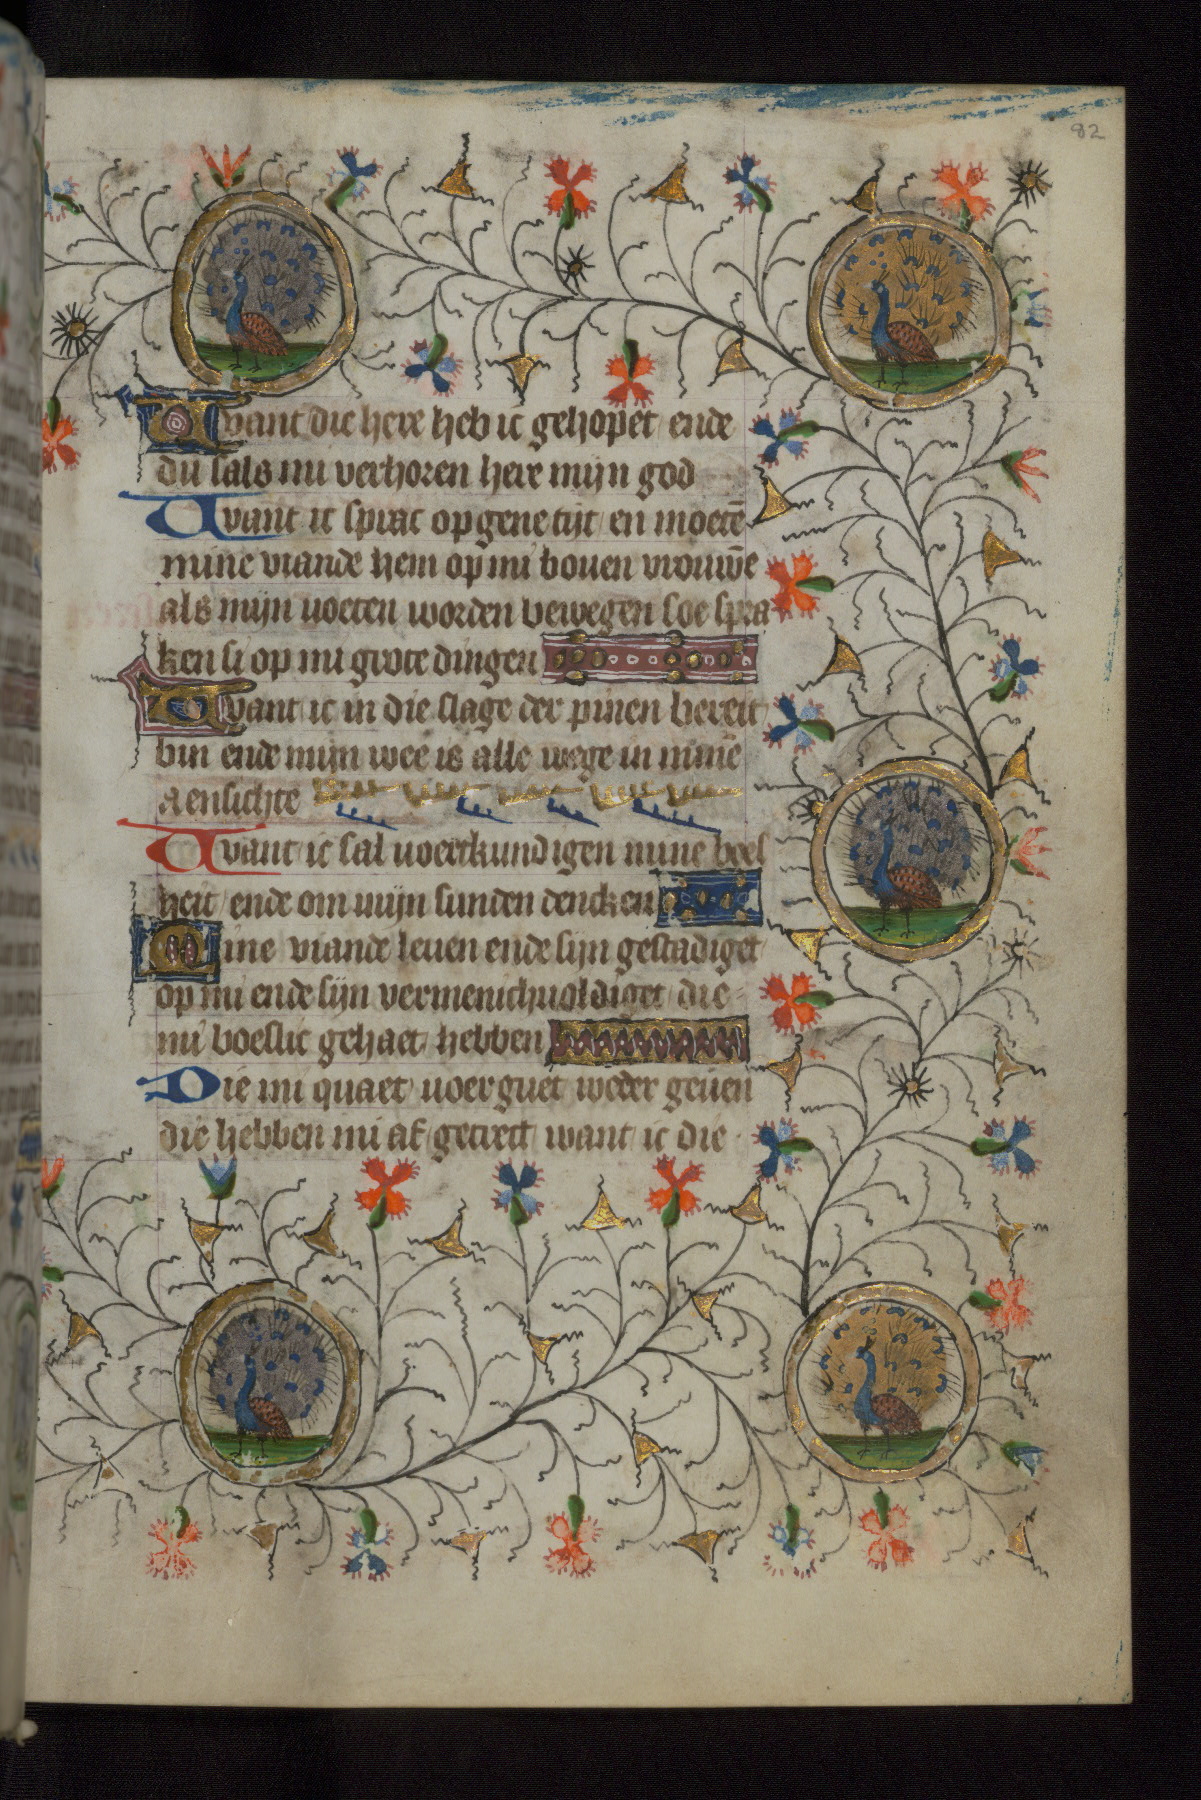 82
Want dic here heb ic gehopet ende
du sals mi verhoren here mijn god
Want ic sprac op gene tijt en moetē
mine viande hem op mi bouen vrouwē
als mijn uoeten worden bewegen soe spra
ken si op mi grote dingen
Want ic in die slage der pinen bereit
bin ende mijn wee is alle wege in minē
aensichte
Want ic sal uoertkundigen mine boes
heit ende om mijn sunden dencken
Mine viande leuen ende sijn gestadiget
op mi ende sijn vermenichuoldiget die
mi boeslic gehaet hebben
Die mi quaet uoer guet weder geuen
die hebben mi af getrect want ic die